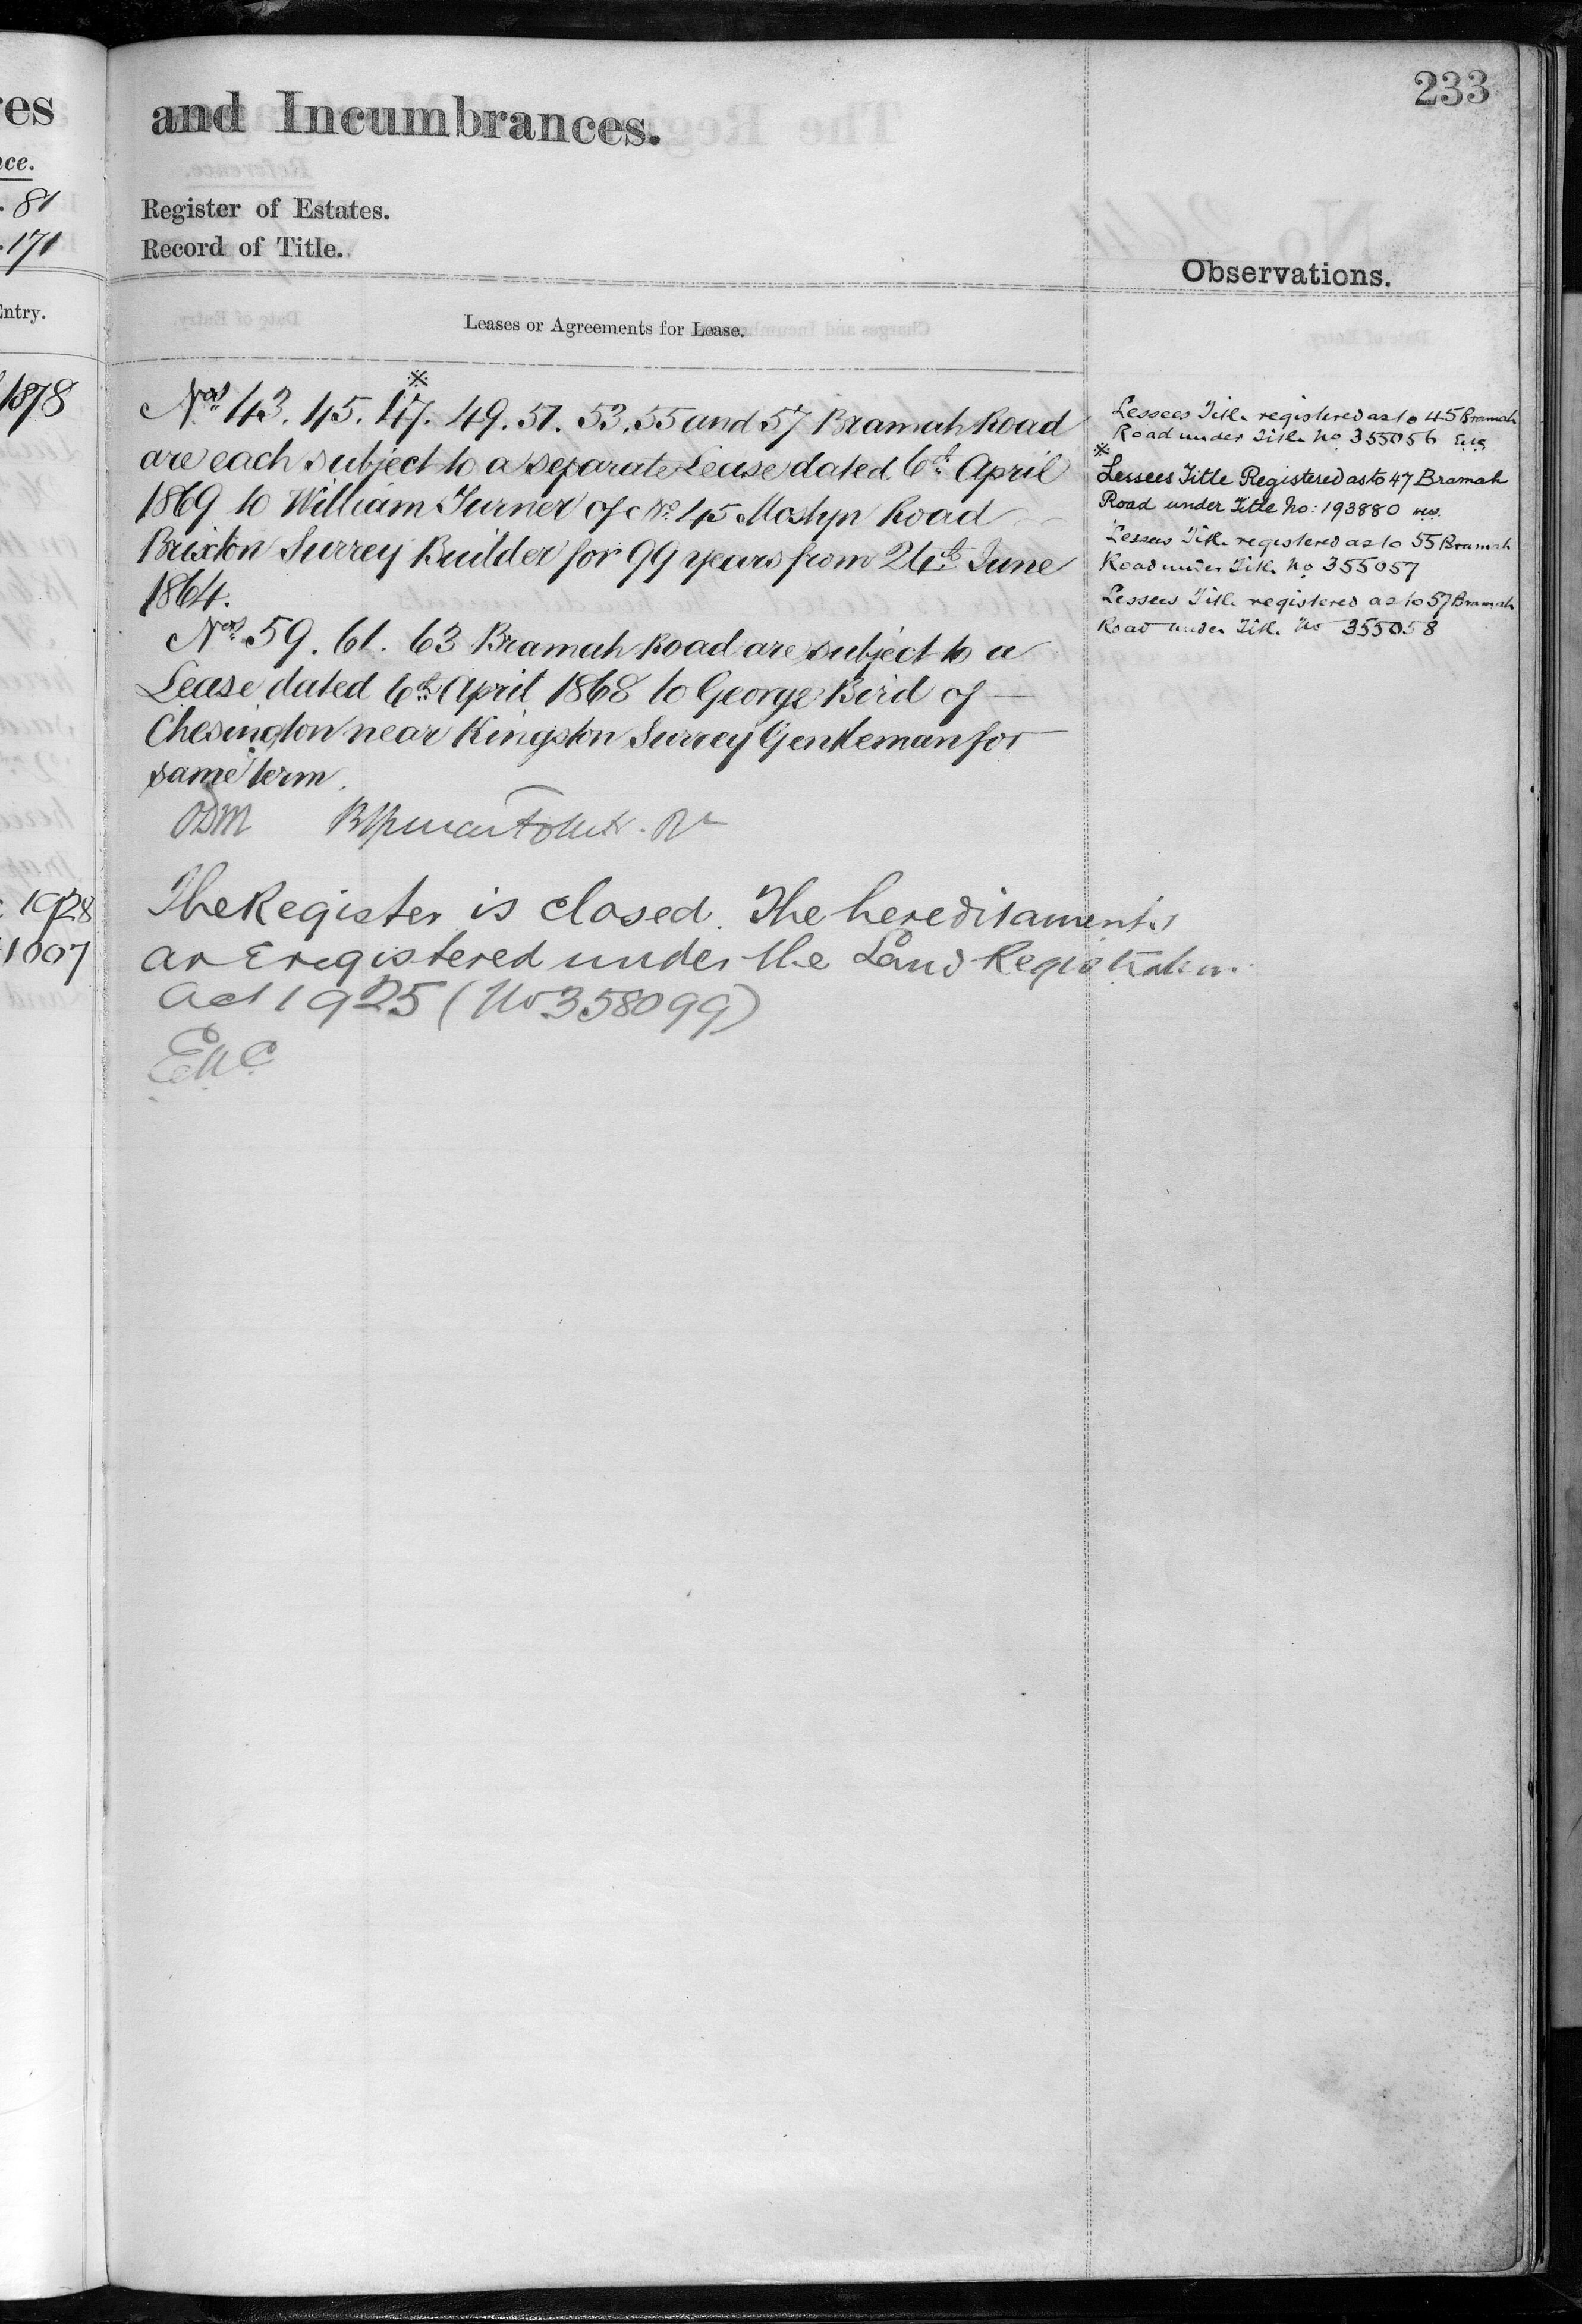 233
and Incumbrances.
Register of Estates.
Record of Title.
Leases or Agreements for Lease.
Nos 43. 45. 47. 49. 51. 53. 55 and 57 Bramah Road
are each subject to a separate Lease dated 6th April
1869 to William Turner of No 45 Mostyn Road
Brixton Surrey Builder for 99 years from 24th June
1864.
Nos 59. 61. 63 Bramah Road are subject to a
Lease dated 6th April 1868 to George Bird of
Chesington near Kingston Surrey Gentleman for
same term.
The Register is closed. The hereditaments
are registered under the Land Registration
Act 1925 (No 358099)
Observations.
Lessees Title registered as to 45 Bramah
Road under Title No 355056
※
Lessees Title Registered as to 47 Bramah
Road under Title No: 193880
Lessees Title registered as to 55 Bramah
Road under Title No 355057
Lessees Title registered as to 57 Bramah
Road under Title No 355058
es
ce.
. 81
. 171
Entry.
1878
1928